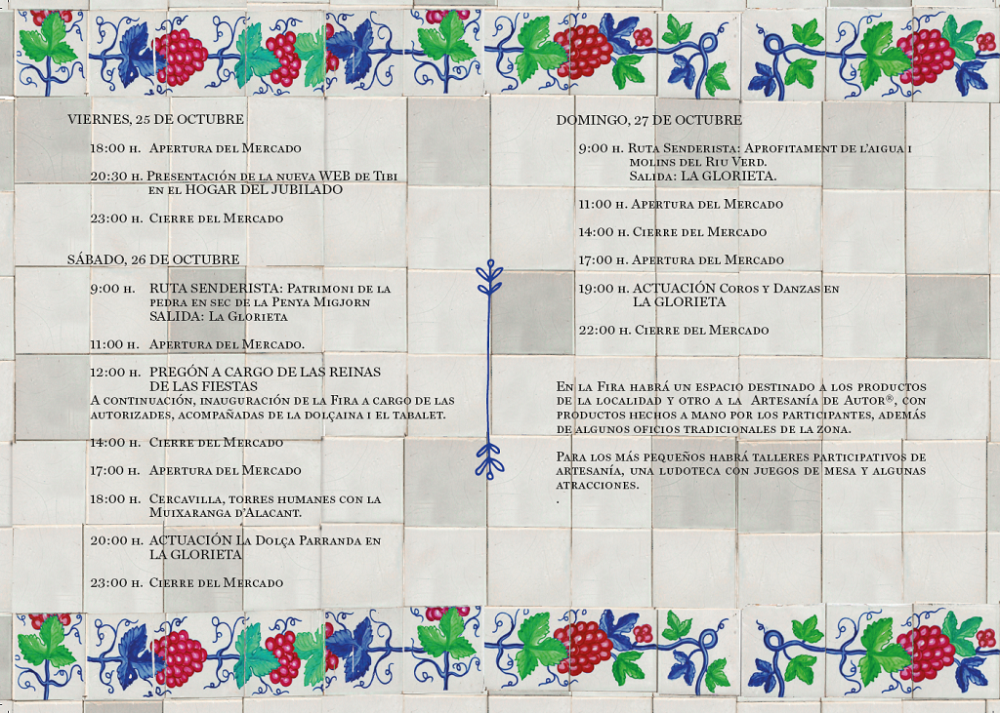 VIERNES, 25 DE OCTUBRE
18:00 H. APERTURA DEL MERCADO
20:30 H. PRESENTACIÓN DE LA NUEVA WEB DE TIBI
EN EL HOGAR DEL JUBILADO
23:00 H. CIERRE DEL MERCADO
SÁBADO, 26 DE OCTUBRE
9:00 H. RUTA SENDERISTA: PATRIMONI DE LA
PEDRA EN SEC DE LA PENYA MIGJORN
SALIDA: LA GLORIETA
11:00 H. APERTURA DEL MERCADO.
12:00 H. PREGÓN A CARGO DE LAS REINAS
DE LAS FIESTAS
A CONTINUACIÓN, INAUGURACIÓN DE LA FIRA A CARGO DE LAS
AUTORIZADES, ACOMPAÑADAS DE LA DOLÇAINA I EL TABALET.
14:00 H. CIERRE DEL MERCADO
17:00 H. APERTURA DEL MERCADO
18:00 H. CERCAVILLA, TORRES HUMANES CON LA
MUIXARANGA D'ALACANT.
20:00 H. ACTUACIÓN LA DOLÇA PARRANDA EN
LA GLORIETA
23:00 H. CIERRE DEL MERCADO
DOMINGO, 27 DE OCTUBRE
9:00 H. RUTA SENDERISTA: APROFITAMENT DE L'AIGUA I
MOLINS DEL RIU VERD.
SALIDA: LA GLORIETA.
11:00 H. APERTURA DEL MERCADO
14:00 H. CIERRE DEL MERCADO
17:00 H. APERTURA DEL MERCADO
19:00 H. ACTUACIÓN COROS Y DANZAS EN
LA GLORIETA
22:00 H. CIERRE DEL MERCADO
EN LA FIRA HABRÁ UN ESPACIO DESTINADO A LOS PRODUCTOS
DE LA LOCALIDAD Y OTRO A LA ARTESANÍA DE AUTOR®, CON
PRODUCTOS HECHOS A MANO POR LOS PARTICIPANTES, ADEMÁS
DE ALGUNOS OFICIOS TRADICIONALES DE LA ZONA.
PARA LOS MÁS PEQUEÑOS HABRÁ TALLERES PARTICIPATIVOS DE
ARTESANÍA, UNA LUDOTECA CON JUEGOS DE MESA Y ALGUNAS
ATRACCIONES.
.